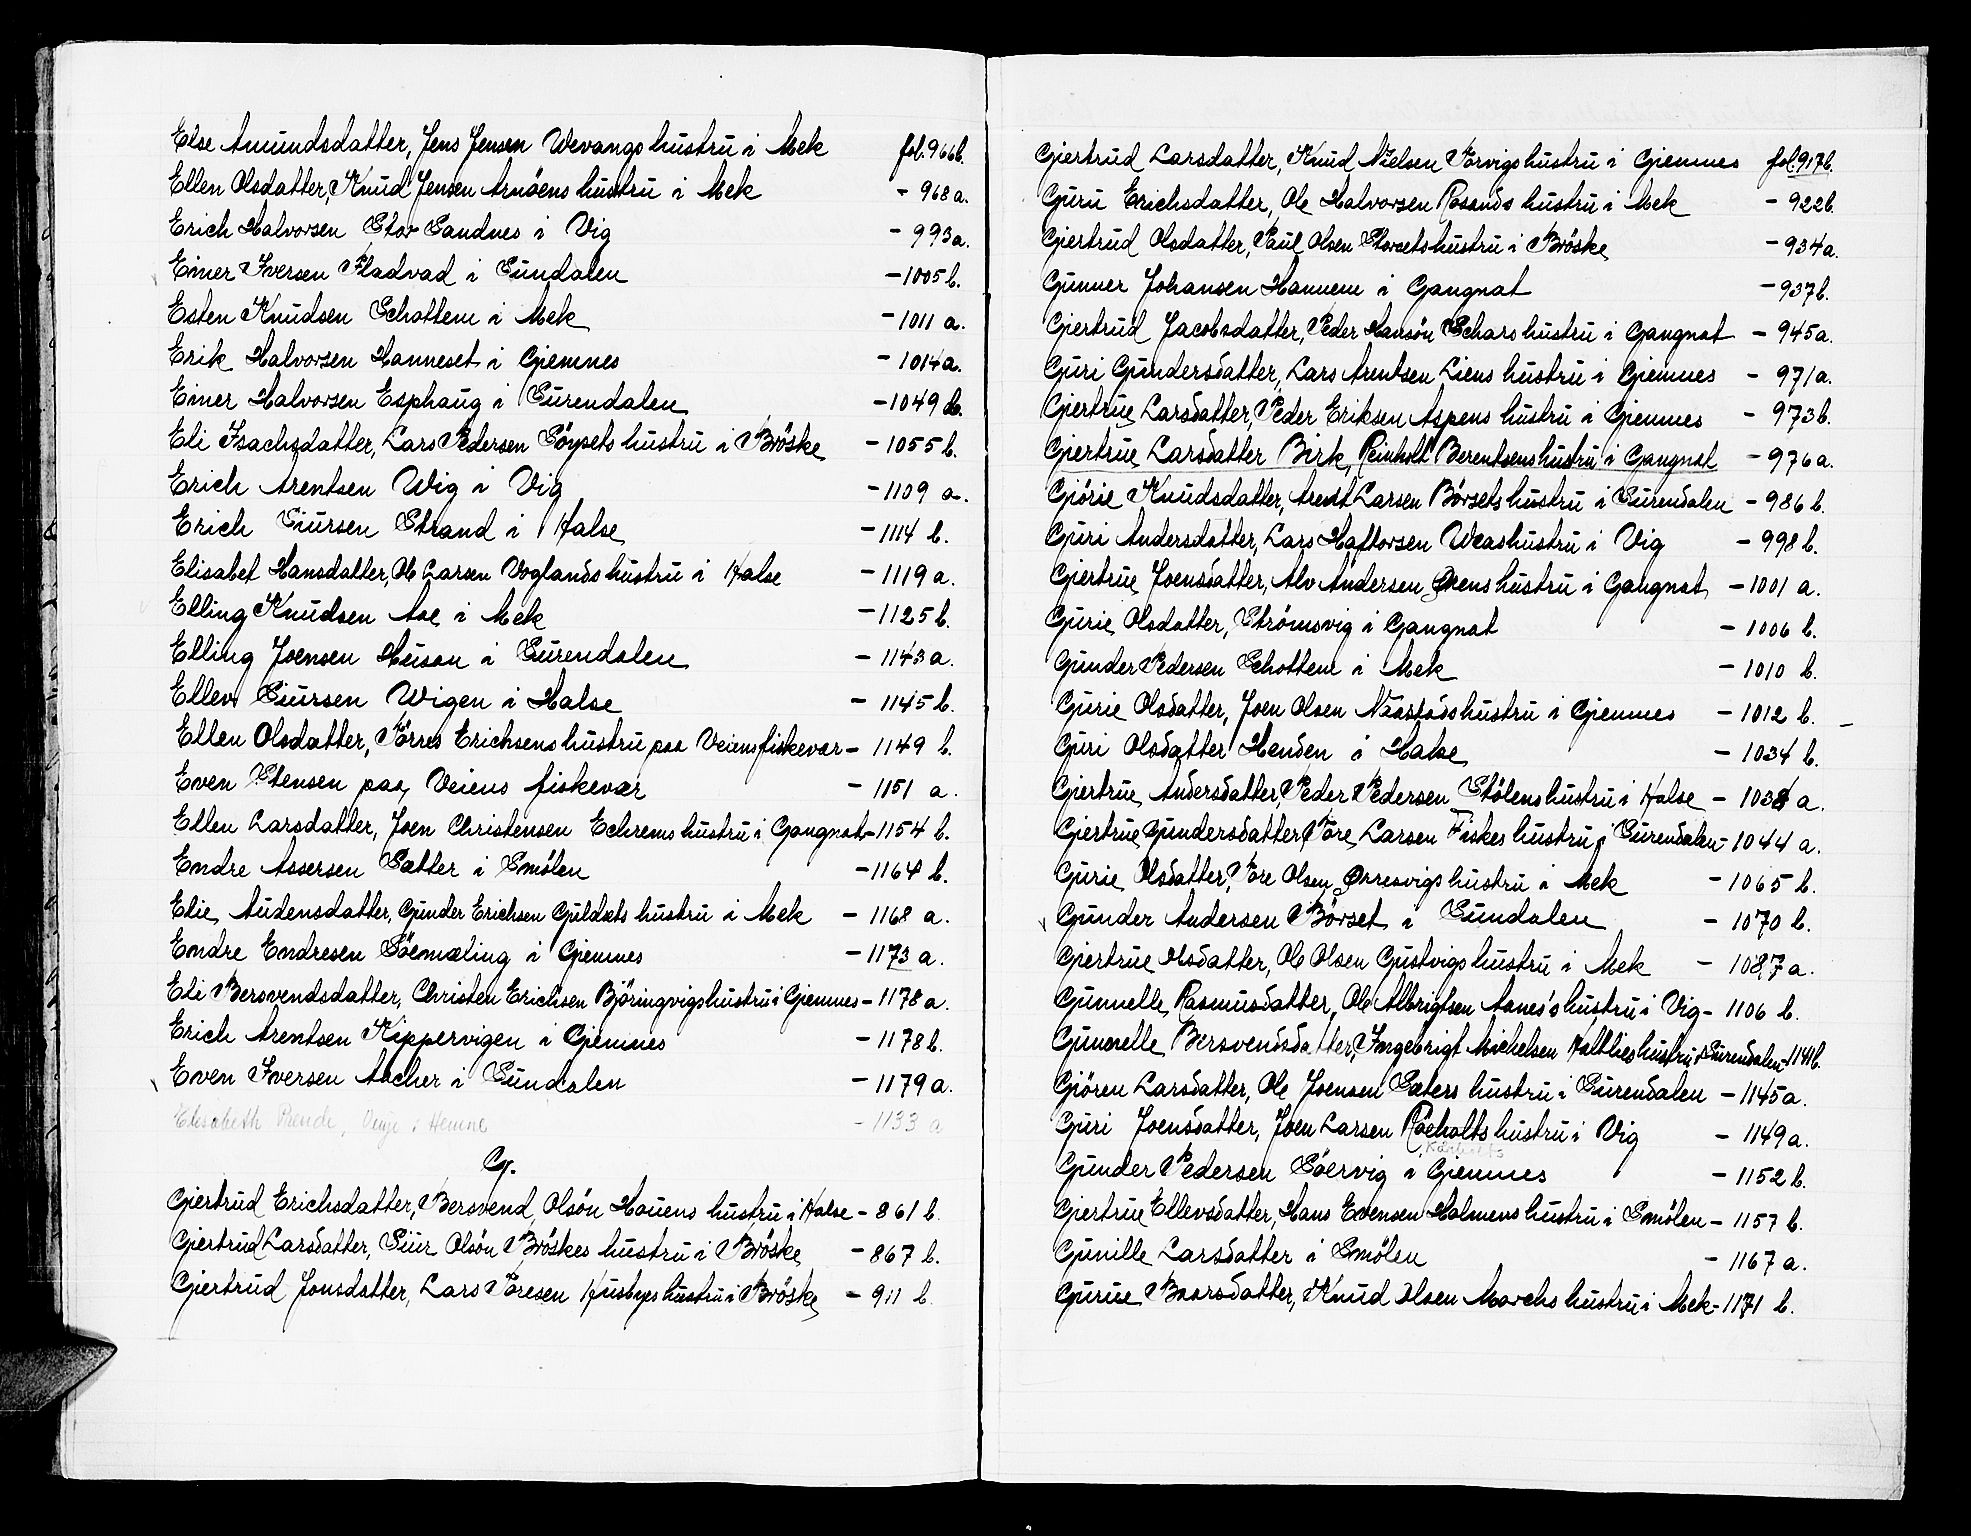 Else Amundsdatter, Jens Jensen Wevangs hustru i Mek fol. 966b.
Ellen Olsdatter, Knud Jensen Arnöens hustru i Mek - 968 a.
Erich Halvorsen Stor Sandnes i Vig - 993a.
Einer Iversen Fladvad i Sundalen - 1005 b.
Esten Knudsen Schottem i Mek - 1011 a.
Erik Halvorsen Hanneset i Gjemnes - 1014a.
Einer Halvorsen Esphaug i Surendalen - 1049 b.
Eli Isachsdatter, Lars Pedersen Söysets hustru i Bröske - 1055 b.
Erich Arentsen Wig i Vig - 1109 a.
Erich Siursen Strand i Halse - 1114 b.
Elisabet Hansdatter, Ole Larsen Voglands hustru i Halse - 1119 a.
Elling Knudsen Aae i Mek - 1125 b.
Elling Joensen Husan i Surendalen - 1143 a.
Ellev Siursen Wigen i Halse - 1145 b.
Ellen Olsdatter, Törres Erichsens hustru paa Veiens fiskevær - 1149 b.
Even Stensen paa Veiens fiskevær - 1151 a.
Ellen Larsdatter, Joen Christensen Echrems hustru i Gangnat - 1154 b.
Endre Assersen Sætter i Smölen - 1164 b.
Elie Audensdatter, Gunder Erichsen Guldsets hustru i Mek - 1168 a.
Endre Endresen Söemæling i Gjemnes - 1173 a.
Eli Bersvendsdatter, Christen Erichsen Björingvigs hustru i Gjemnes - 1178 a.
Erich Arentsen Kippervigen i Gjemnes - 1178 b.
Even Iversen Aacher i Sundalen - 1179 a.
Elisabeth Bende, Vinje i Hemne - 1133 a
G.
Gjertrud Erichsdatter, Bersvend Olsön Hauens hustru i Halse - 861 b.
Gjertrud Larsdatter, Siur Olsön Bröskes hustru i Bröske - 867 b.
Gjertrud Jonsdatter, Lars Töresen Husbyes hustru i Bröske - 911 b.
Gjertrud Larsdatter, Knud Nielsen Torvigs hustru i Gjemnes fol. 917b.
Guru Erichsdatter, Ole Halvorsen Rosands hustru i Mek - 922b.
Gjertrud Olsdatter, Paul Olsen Storsets hustru i Bröske - 934a.
Gunner Johansen Hannem i Gangnat - 937b.
Gjertrud Jacobsdatter, Peder Hansön Schars hustru i Gangnat - 945a.
Guri Gundersdatter, Lars Arentsen Liens hustru i Gjemnes - 971a.
Gjertrue Larsdatter, Peder Eriksen Aspens hustru i Gjemnes - 973b.
Gjertrue Larsdatter Birk, Reinholt Berentsens hustru i Gangnat - 976 a.
Gjörie Knudsdatter, Arent Larsen Börsets hustru i Surendalen - 986 b.
Guri Andersdatter, Lars Haftorsen Weas hustru i Vig - 998 b.
Gjertrue Joensdatter, Alv Andersen Ørens hustru i Gangnat - 1001 a.
Gurie Olsdatter, Strömsvig i Gangnat - 1006 b.
Gunder Pedersen Schottem i Mek - 1010 b.
Gurie Olsdatter, Joen Olsen Naastads hustru i Gjemnes - 1012 b.
Guri Olsdatter Henden i Halse - 1034 b.
Gjertrue Andersdatter, Peder Pedersen Stölens hustru i Halse - 1038 a.
Gjertrue Gundersdatter, Tore Larsen Fiskes hustru i Surendalen - 1044 a.
Gurie Olsdatter, Tore Olsen Ørresvigs hustru i Mek - 1065 b.
Gunder Andersen Börset i Sundalen - 1070 b.
Gjertrue Olsdatter, Ole Olsen Gustvigs hustru i Mek - 1087 a.
Gunnelle Rasmusdatter, Ole Albrigtsen Aanes's hustru i Vig - 1106 b.
Gunnelle Bersvendsdatter, Ingebrigt Michelsen Haltlies hustru i Surendalen - 1141b.
Gjören Larsdatter, Ole Joensen Sæters hustru i Surendalen - 1145a.
Guri Joensdatter, Joen Larsen Röeholts hustru i Vig - 1149 a.
Gunder Pedersen Söervig i Gjemnes - 1152 b.
Gjertrue Ellevsdatter, Hans Evensen Holmens hustru i Smölen - 1157 b.
Gunille Larsdatter i Smölen - 1167 a.
Gurue Baarsdatter, Knud Olsen Marchs hustru i Mek - 1171 b.